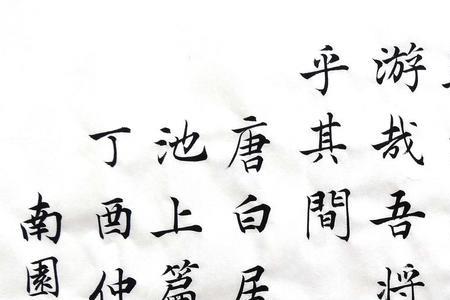 游哉吾將
乎其間
唐白居
池上篇
丁酉仲
南園